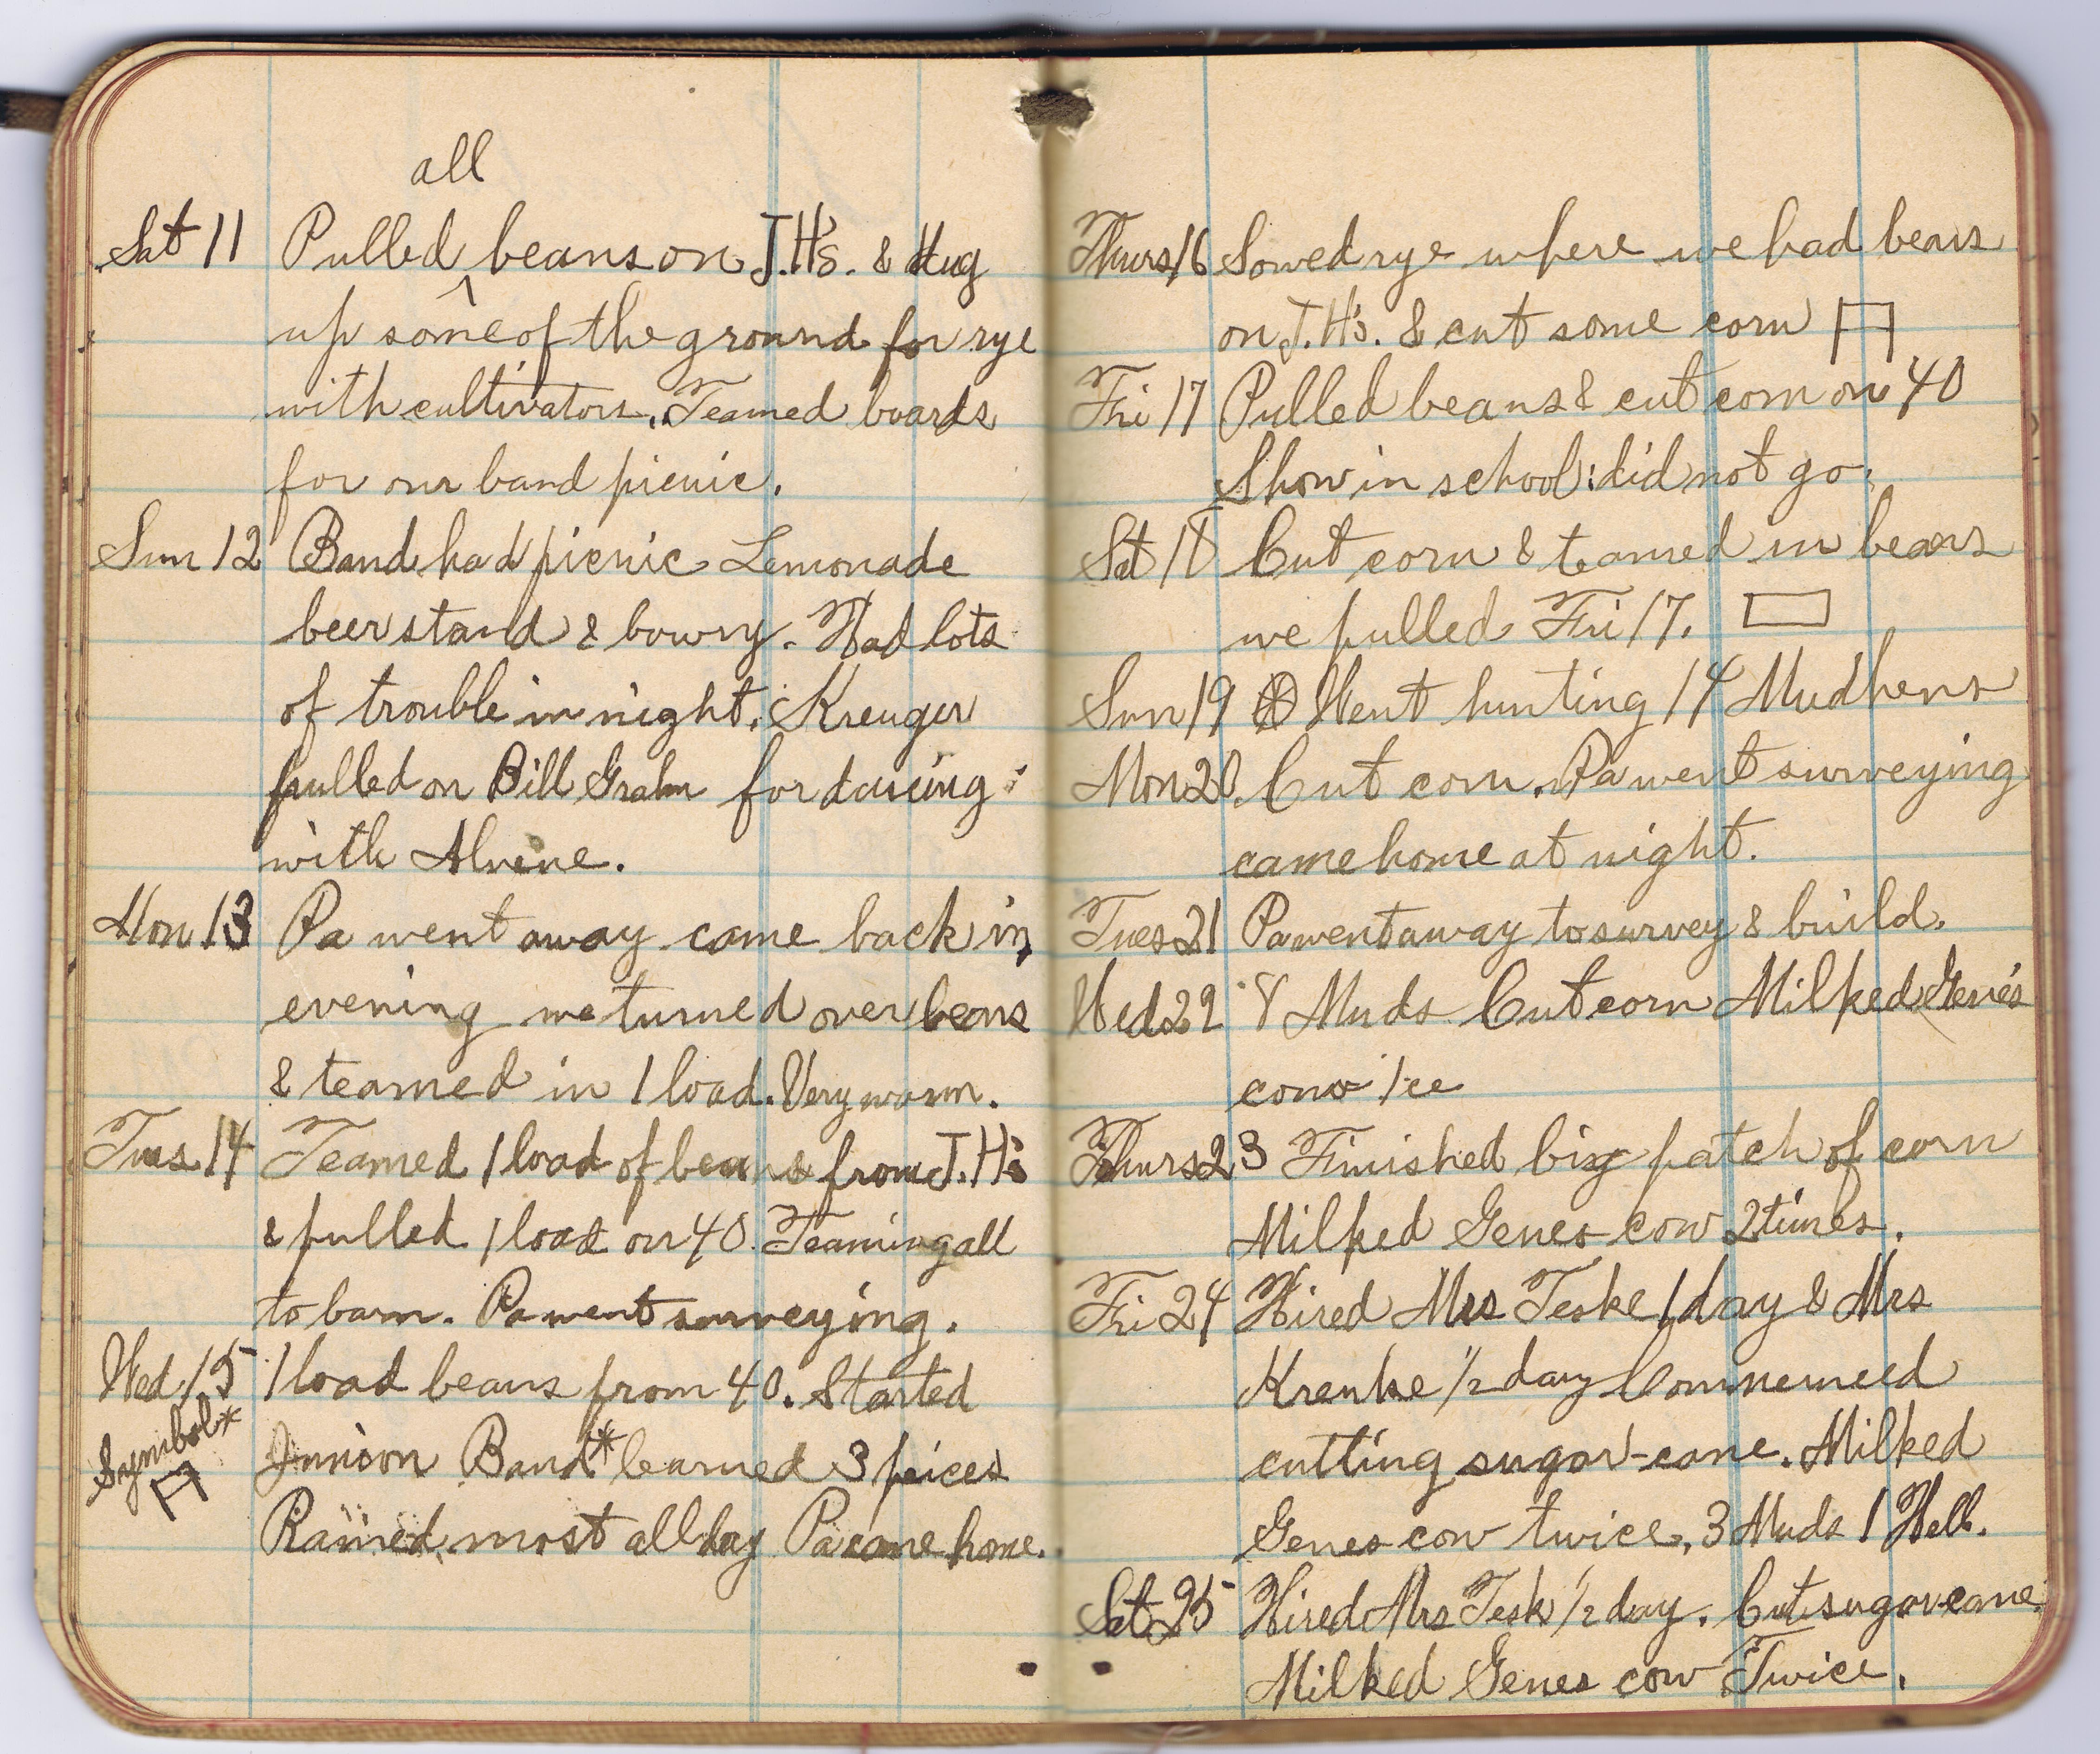 all
Sat 11 Pulled ^ beans on J.H's. & dug
up some of the ground for rye
with cultivators. Teamed boards
for our band picnic.
Sun 12 Band had picnic Lemonade
beer stand & bowry. Had lots
of trouble in night. Kreuger
pulled on Bill Grahn for dancing
with Alvene.
Mon 13 Pa went away came back in
evening we turned over beans
& teamed in 1 load. Very warm.
Tues 14 Teamed 1 load of beans from J.H's
& pulled 1 load on 40. Teaming all
to barn. Pa went surveying.
Wed 15 1 load beans from 40. Started
Symbol* Junion Band* learned 3 peices
Rained most all day Pa came home.
Thurs 16 Sowed rye where we had beans
on J.H's. & cut some corn
Fri 17 Pulled beans & cut corn on 40
Show in school: did not go.
Sat 18 Cut corn & teamed in beans
we pulled Fri 17.
Sun 19 Went hunting 14 Mudhens
Mon 20. Cut corn. Pa went surveying
came home at night.
Tues 21 Pa went away to survey & build.
Wed 22 8 Muds Cut corn Milked Gene's
cow 1ce
Thurs 23 Finished big patch of corn
Milked Genes cow 2 times.
Fri 24 Hired Mrs Teske 1 day & Mrs
Krenke 1/2 day Commenced
cutting sugar-cane. Milked
Genes cow twice. 3 Muds 1 Hell.
Sat 25 Hired Mrs Tesk 1/2 day. Cut sugar cane.
Milked Genes cow Twice.